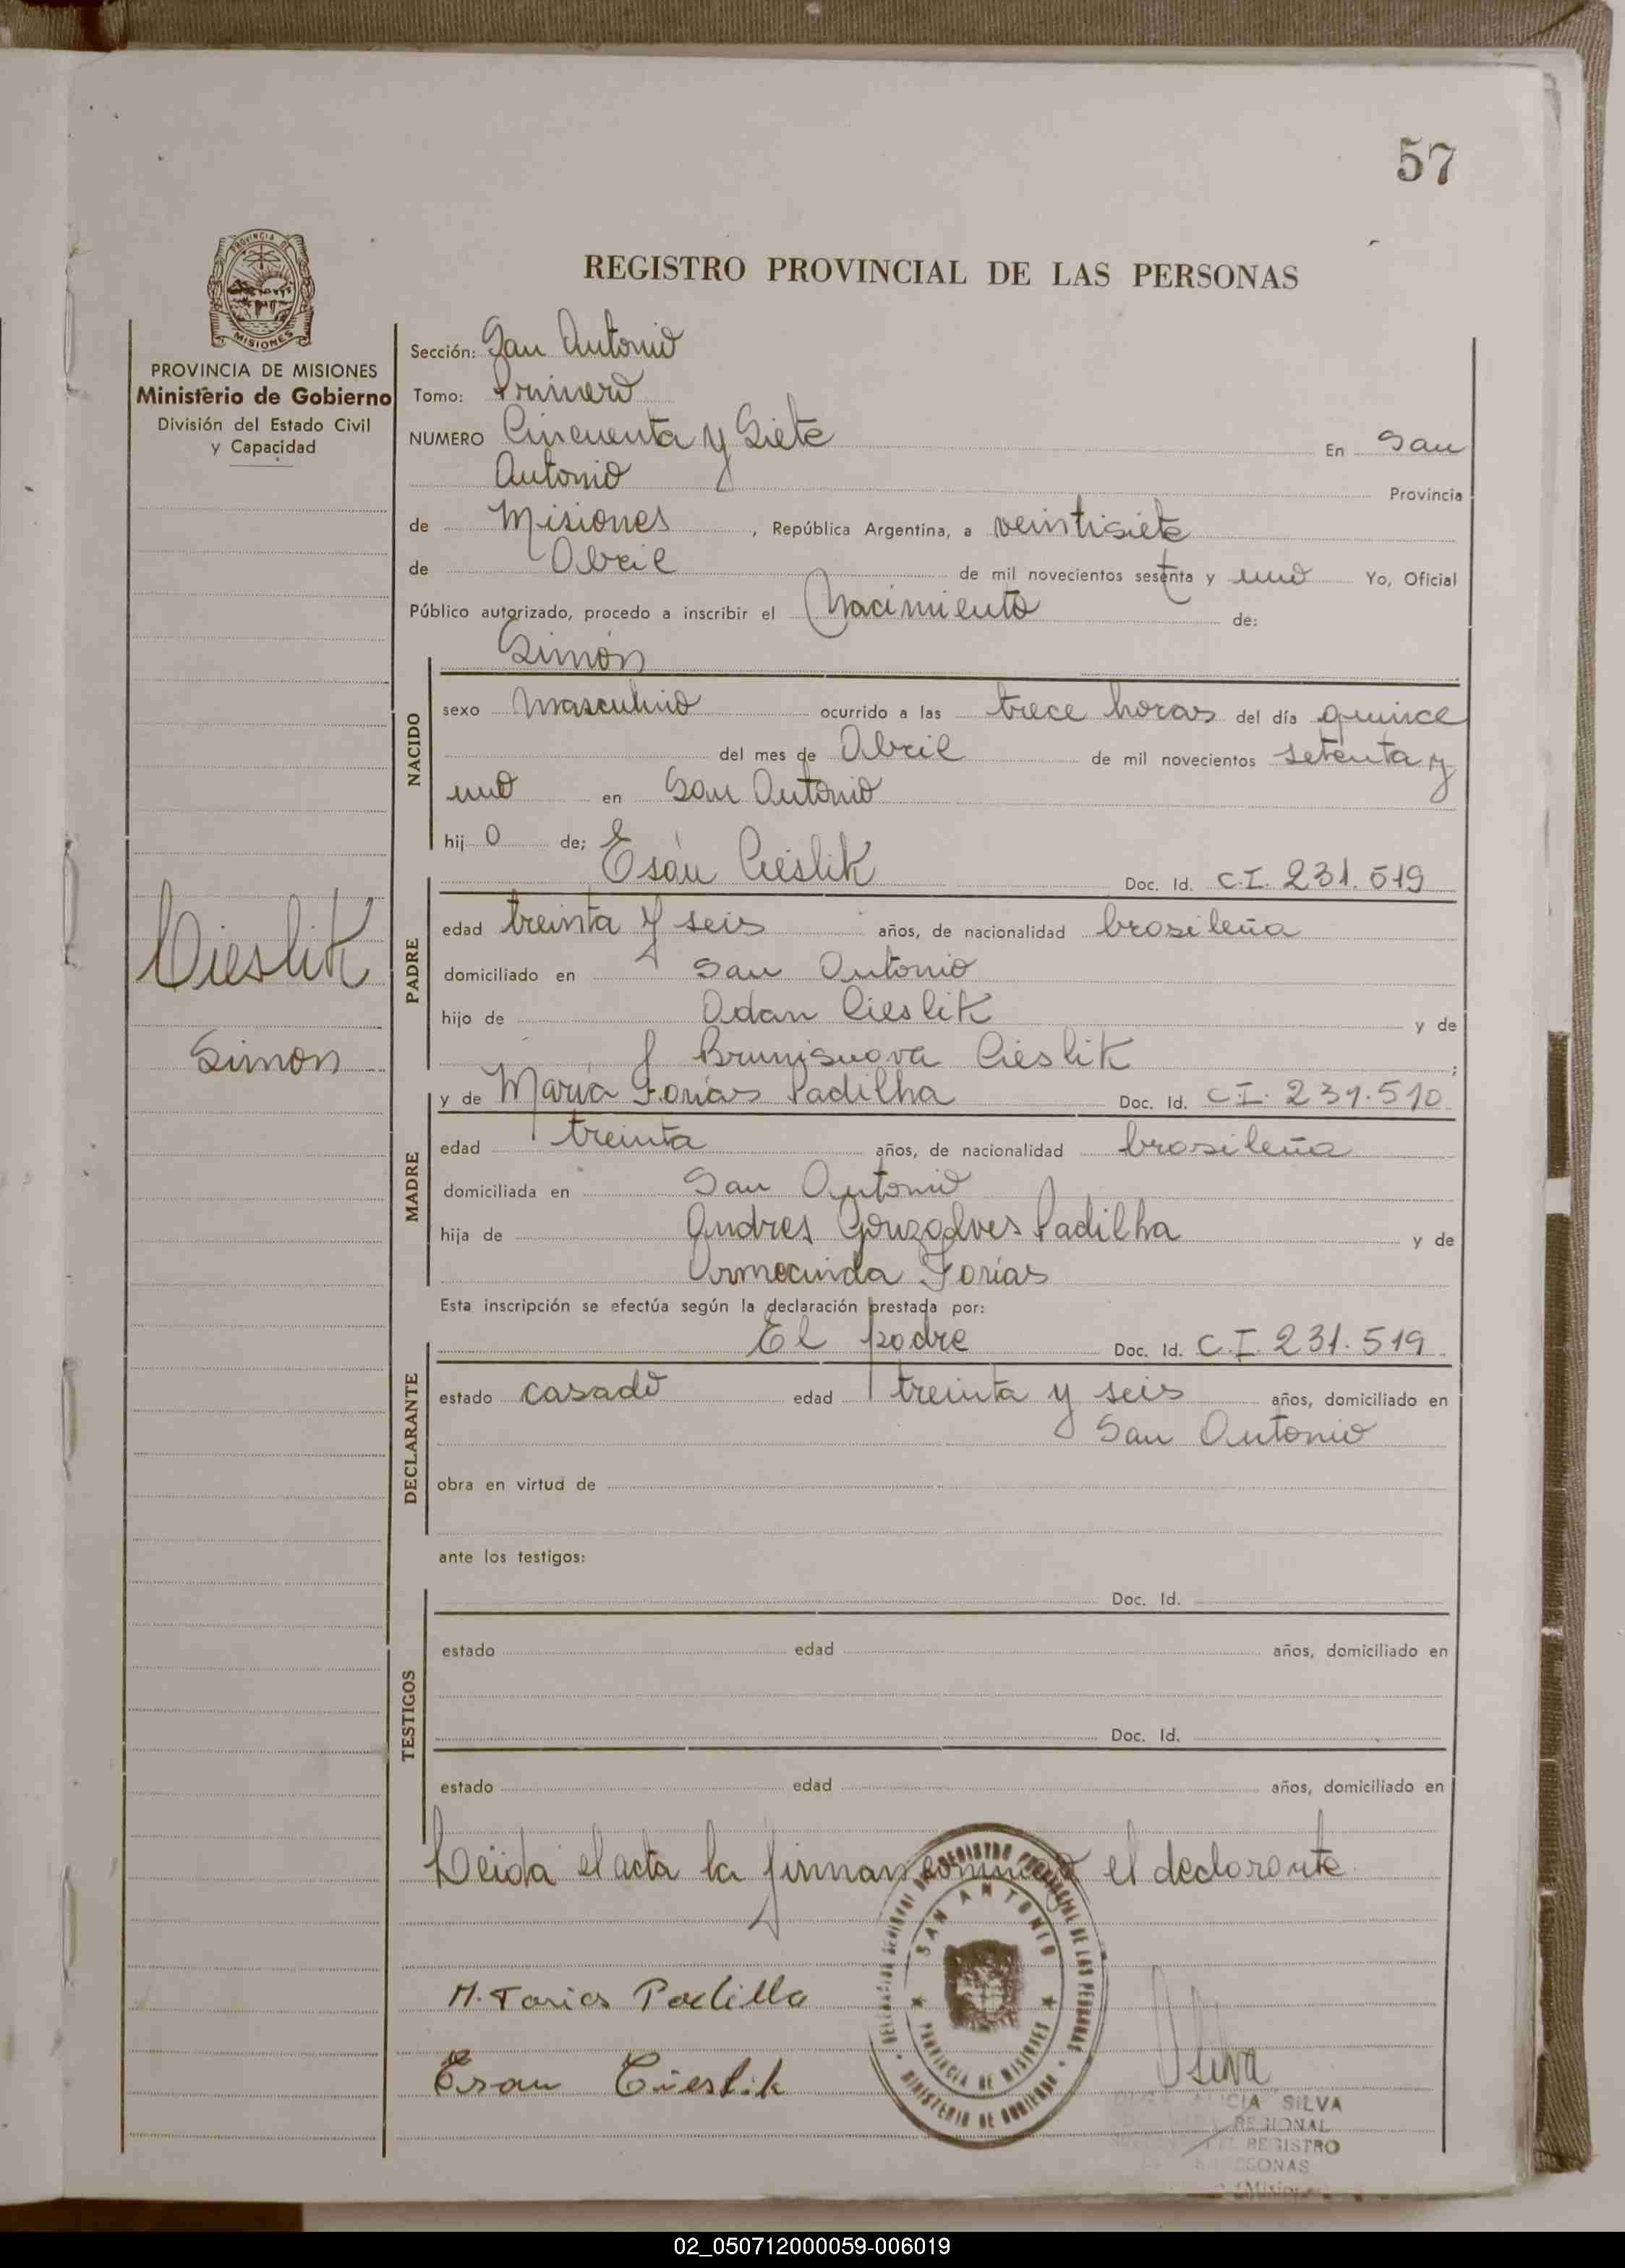 57
PROVINCIA DE
MISIONES
REGISTRO PROVINCIAL DE LAS PERSONAS
PROVINCIA DE MISIONES
Ministerio de Gobierno
División del Estado Civil
y Capacidad
Sección: San Antonio
Tomo: Primero
NUMERO Cincuenta y Siete En San
Antonio Provincia
de Misiones, República Argentina, a veintisiete
de Abril de mil novecientos sesenta y uno Yo, Oficial
Público autorizado, procedo a inscribir el Nacimiento de:
Simón
NACIDO
sexo masculino ocurrido a las trece horas del día quince
del mes de Abril de mil novecientos setenta y
uno en San Antonio
hijo de; Esaú Cieslik Doc. Id. C.I. 231.519
Cieslik
Simon
PADRE
edad treinta y seis años, de nacionalidad brasileña
domiciliado en San Antonio
hijo de Adan Cieslik y de
Cieslik;
y de María Farías Padilha Doc. Id. C.I. 231.510
MADRE
edad treinta años, de nacionalidad brasileña
domiciliada en San Antonio
hija de Andres Gonzalves Padilha y de
Farías
Esta inscripción se efectúa según la declaración prestada por:
El padre Doc. Id. C.I. 231.519
DECLARANTE
estado casado edad treinta y seis años, domiciliado en
San Antonio
obra en virtud de
ante los testigos:
TESTIGOS
Doc. Id.
estado edad años, domiciliado en
Doc. Id.
estado edad años, domiciliado en
Leida el acta la firman conmigo el declarante
SAN ANTONIO
PROVINCIA DE MISIONES
MINISTERIO DE GOBIERNO
M. Farias Padilla
Esau Cieslik
Silva
ALICIA SILVA
REGIONAL
DEL REGISTRO
02_050712000059-006019